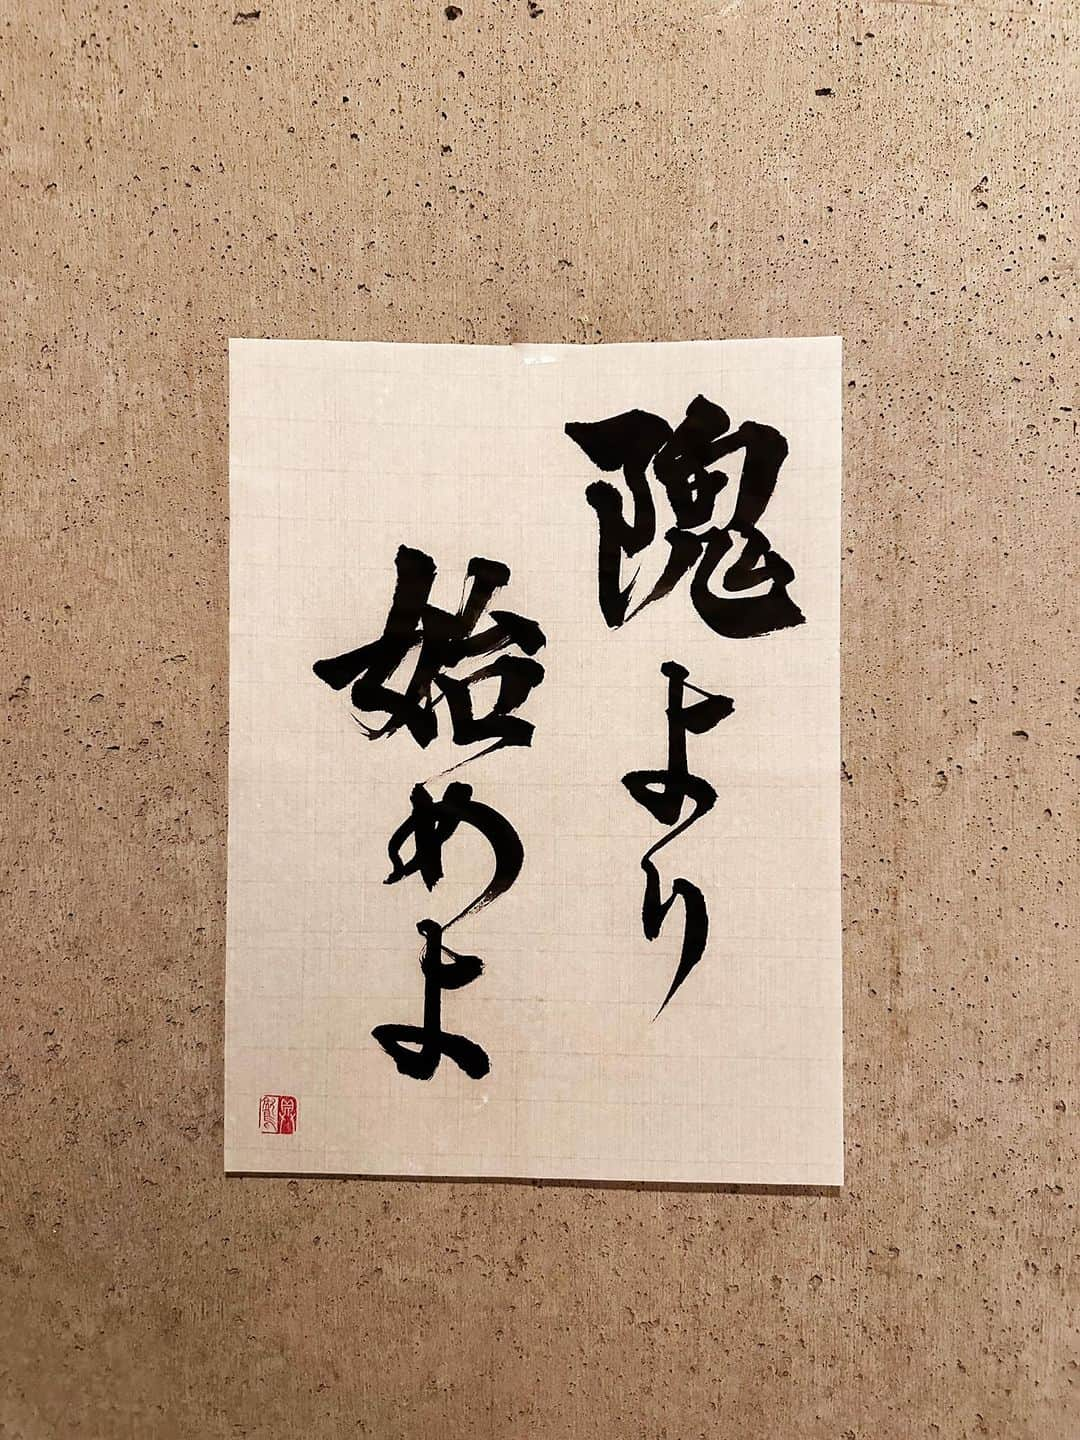 隗より
始めよ